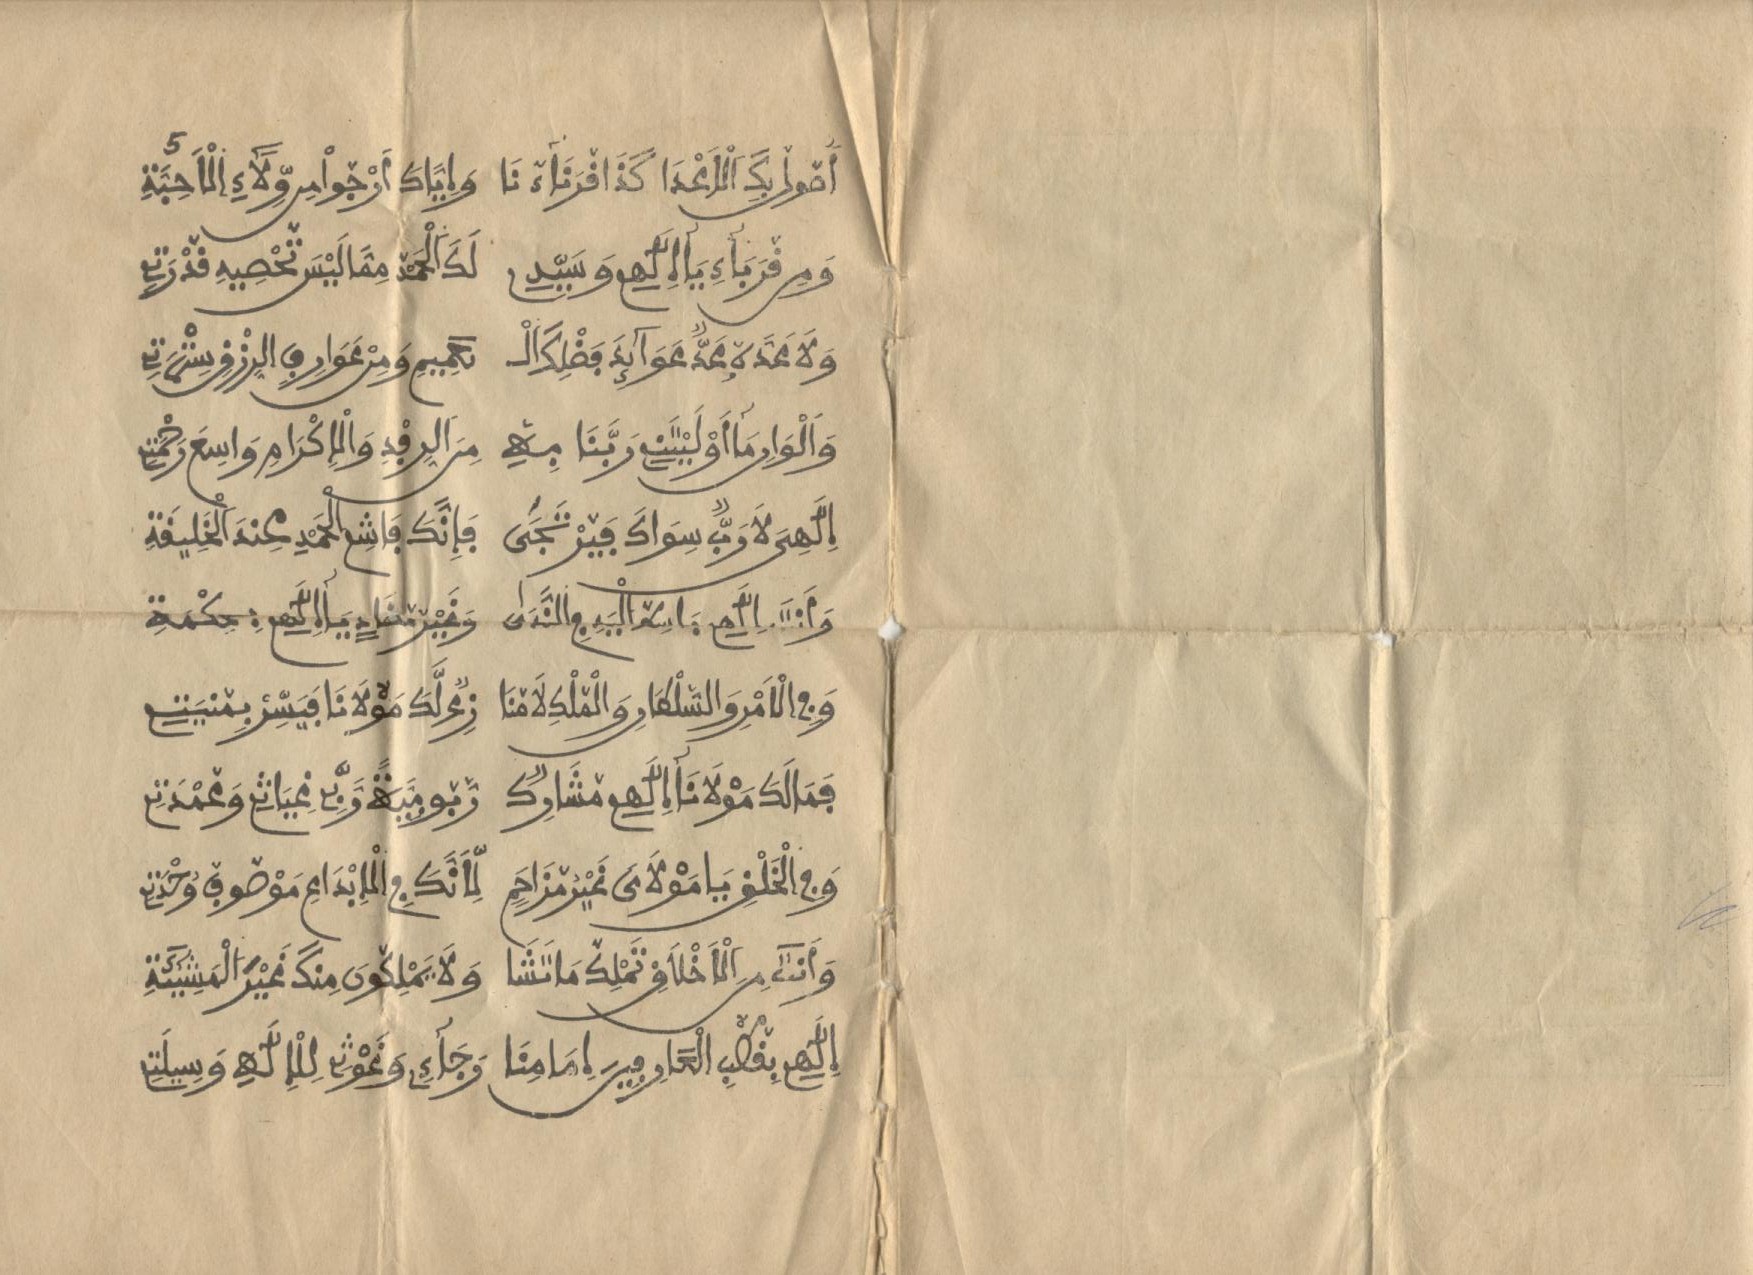 5
أَصُولُ بِكَ الْأَعْدَا كَذَا قُرَنَآءَنَا وَإِيَّاكَ أَرْجُوا مِن وِّلَآءِ الْأَحِبَّةِ
وَمِن قُرَبَآءِ يَآ إِلَٰهِي وَسَيِّدِي لَكَ الْحَمْدُ مِمَّا لَيْسَ تُحْصِيهِ قُدْرَتِي
وَلَا عَدَّ لِي عَدٌّ عَوَآئِدَ فَضْلِكَ الْـ عَمِيمِ وَمِنْ عَوَارِفِ الرِّزْقِ سِتْرَتِي
وَأَلْوَانِ مَآ أَوْلَيْتَنِي رَبَّنَا بِهِ مِنَ الرِّفْدِ وَالْإِكْرَامِ وَاسِعَ رَحْمَتِي
إِلَٰهِيَ لَا رَبٌّ سِوَاكَ فَيُرْتَجَى فَإِنَّكَ فَاشِي الْحَمْدِ عِنْدَ الْخَلِيفَةِ
وَأَنْتَ إِلَٰهِي بَاسِطُ الْيَدِ فِي النَّدَى وَغَيْرُ مُضَادٍ يَآ إِلَٰهِي بِحِكْمَةِ
وَفِي الْأَمْرِ وَالسُّلْطَانِ وَالْمُلْكِ لَا مُنَا زِعٌ لَّكَ مَوْلَانَا فَيَسِّرْ بِمُنْيَتِي
فَمَا لَكَ مَوْلَانَآ إِلَٰهِي مُشَارِكٌ رُبُوبِيَّةً رَبِّي غِيَاثِي وَعُمْدَتِي
وَفِي الْخَلْقِ يَا مَوْلَايَ غَيْرُ مُزَاحَمٍ لِّأَنَّكَ فِي الْإِبْدَاعِ مَوْصُوفُ وُحْدَتِي
وَأَنْتَ مِنَ الْأَخْلَاقِ تَمْلِكُ مَا تَشَا وَلَا يَمْلِكُونَ مِنْكَ غَيْرَ الْمَشِيئَةِ
إِلَٰهِي بِقُطْبِ الْعَارِفِينَ إِمَامِنَا وَجَآءِي وَغَوْثِي لِلْإِلَٰهِ وَسِيلَتِي